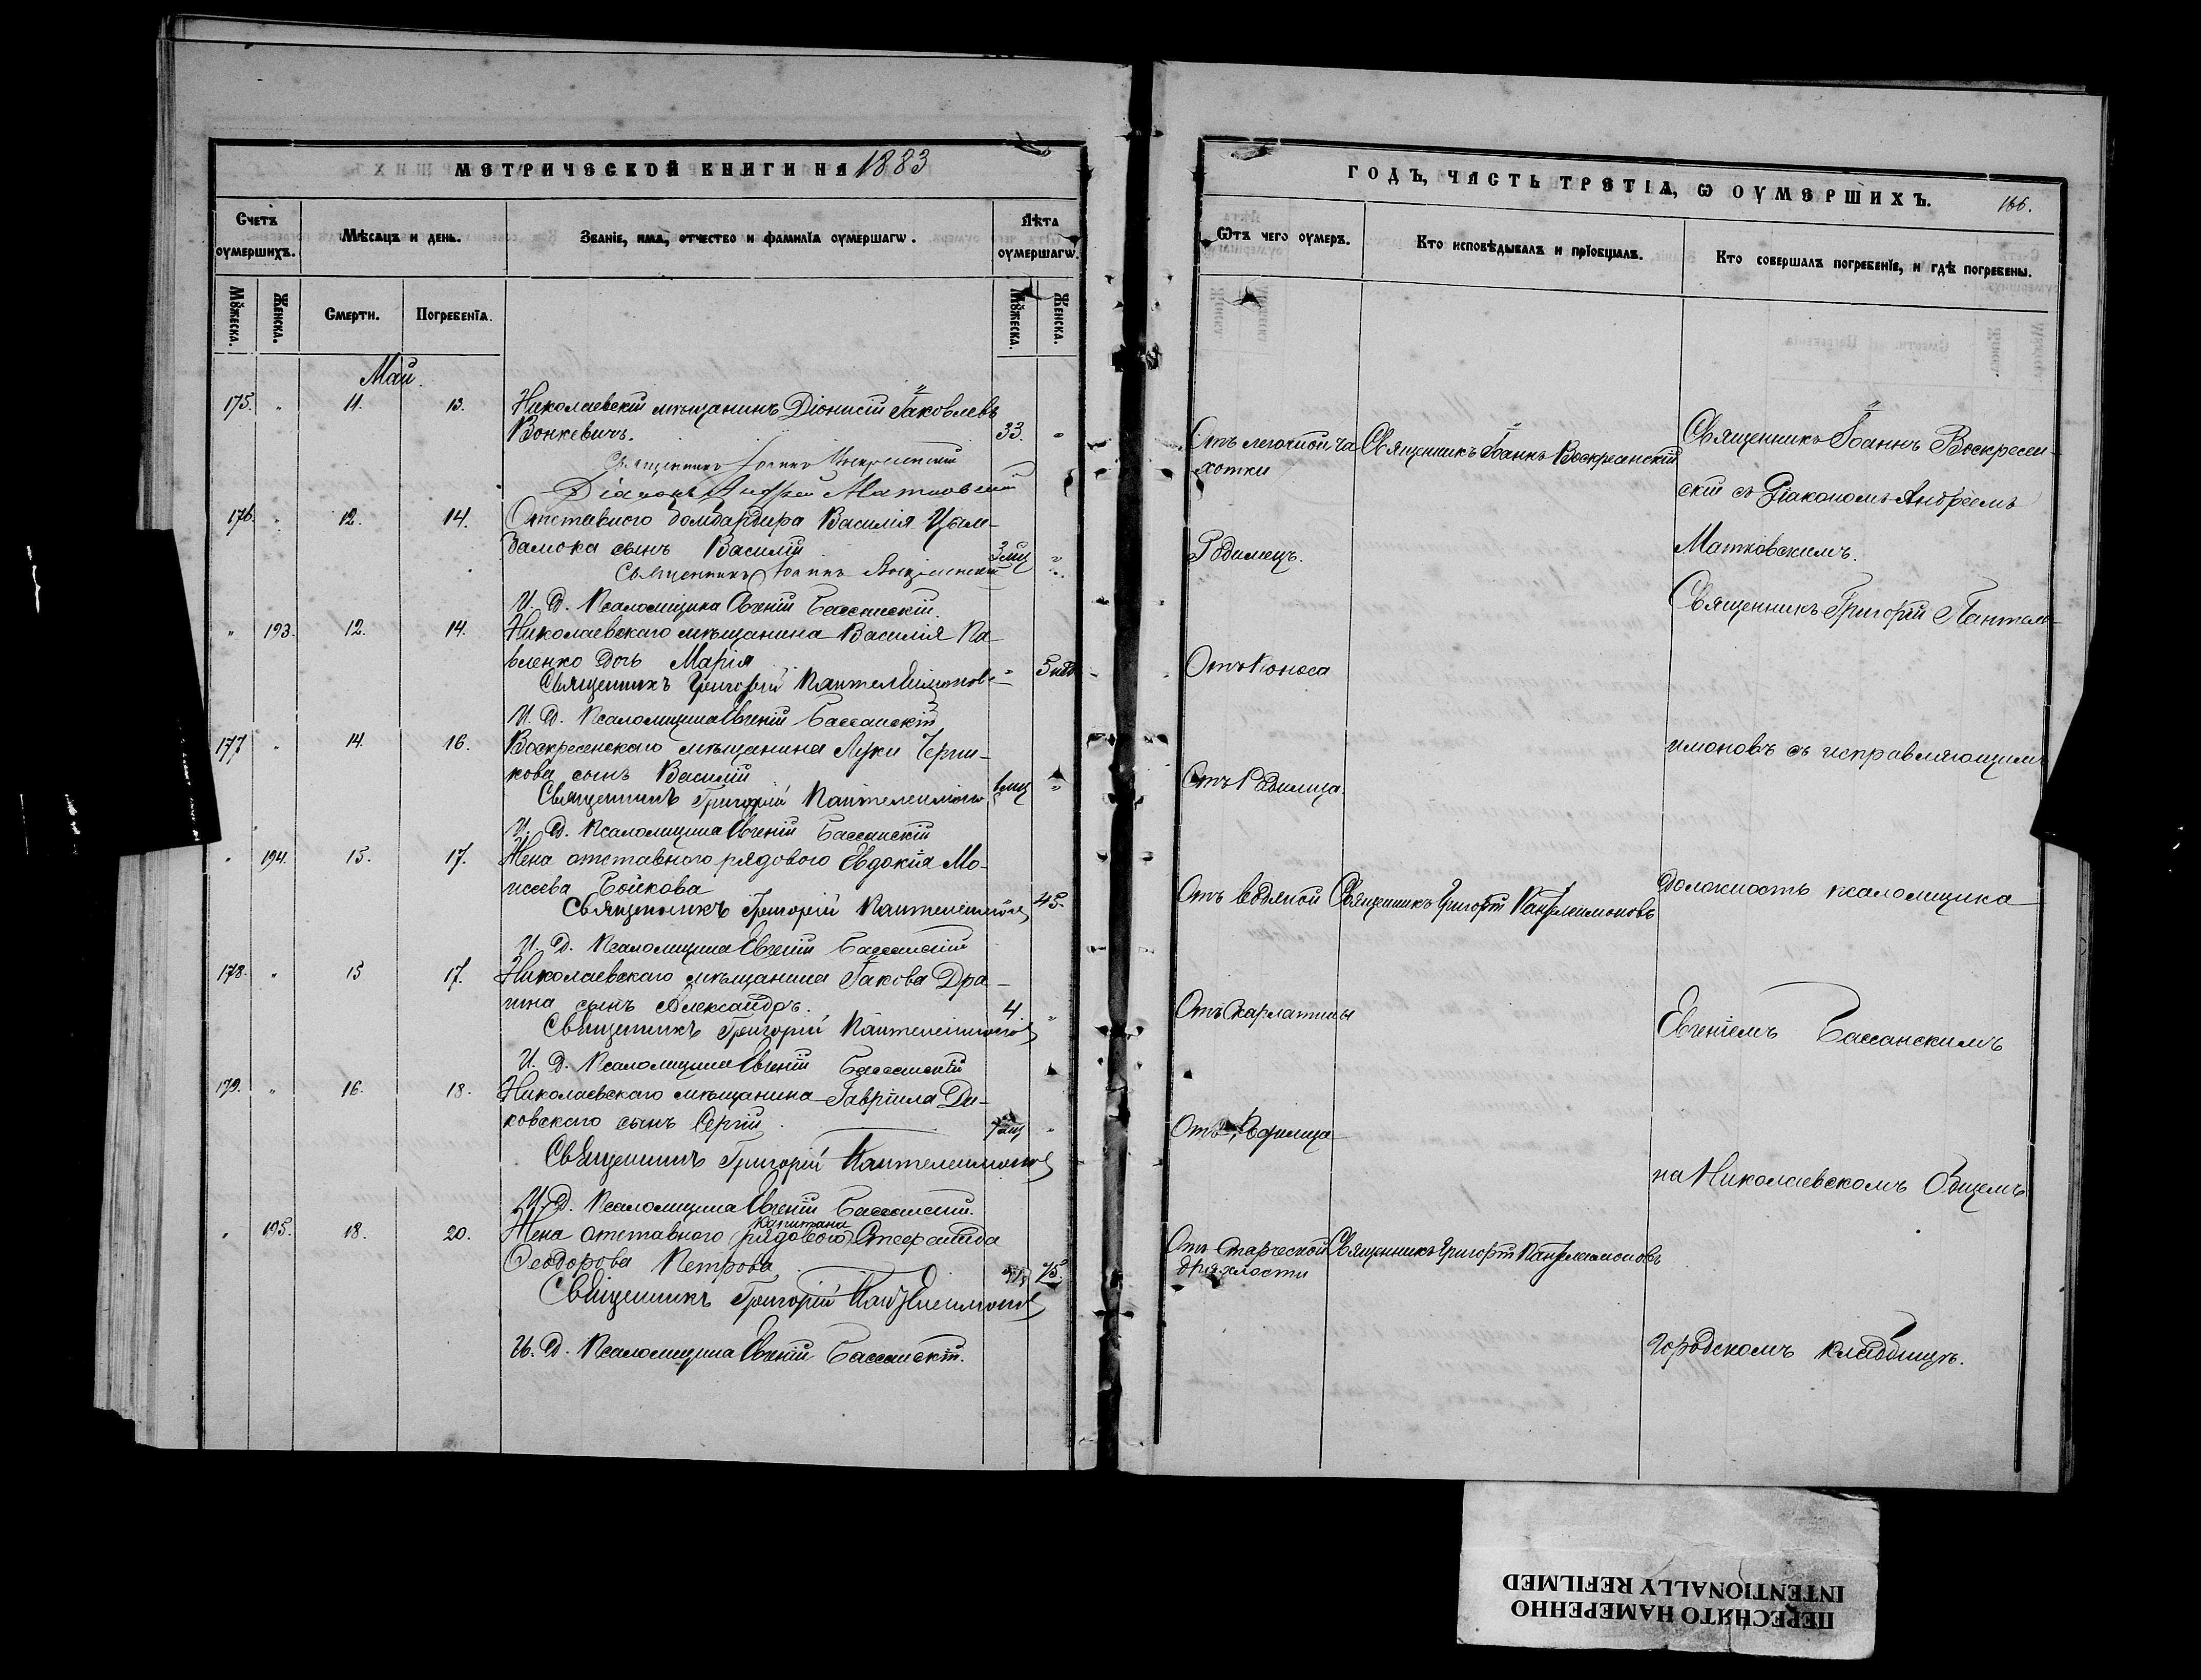 МЕТРИЧЕСКОЙ КНИГИ НА 1883
Счетъ оумершихъ.
Мѣсяцъ и день.
Званіе, имя, отчество и фамилія оумершагѡ.
Лѣта оумершагѡ.
Мужеска.
Женска.
Смерти.
Погребенія.
Мужеска.
Женска.
Май.
175. " 11. 13. Николаевскій мѣщанинъ Діонисій Іаковлевъ
Вонкевичъ. 33. "
Священникъ Іоаннъ Воскресенскій
Діаконъ Андрей Матковскій
176. " 12. 14. Отставного бомбардира Василія Цым-
балюка сынъ Василій 3 мц "
Священникъ Іоаннъ Воскресенскій
И. Д. Псаломщика Евгеній Бассанскій.
" 193. 12. 14. Николаевскаго мѣщанина Василія Па-
вленко дочь Марія " 5 нед
Священникъ Григорій Пантелеимоновъ
И. Д. Псаломщика Евгеній Бассанскій
177 " 14. 16. Воскресенскаго мѣщанина Луки
кова сынъ Василій 1 мц "
Священникъ Григорій Пантелеимоновъ
И. Д. Псаломщика Евгеній Бассанскій
" 194. 15. 17. Жена отставного рядового Евдокія Мо-
исеева Бойкова 45.
Священникъ Григорій Пантелеимоновъ
И. Д. Псаломщика Евгеній Бассанскій
178. " 15 17. Николаевскаго мѣщанина Іакова Дра-
гина сынъ Александръ. 4. "
Священникъ Григорій Пантелеимоновъ
И. Д. Псаломщика Евгеній Бассанскій
179. " 16. 18. Николаевскаго мѣщанина Гавріила Ди-
ковскаго сынъ Сергій "
Священникъ Григорій Пантелеимоновъ
И. Д. Псаломщика Евгеній Бассанскій.
капитана
" 195. 18. 20. Жена отставного рядового
Ѳеодорова Петрова 75.
Священникъ Григорій Пантелеимоновъ
И. Д. Псаломщика Евгеній Бассанскій.
ГОДЪ, ЧАСТЬ ТРЕТІЯ, Ѡ ОУМЕРШИХЪ.
166.
Ѿтъ чего оумеръ.
Кто исповѣдывалъ и пріобщалъ.
Кто совершалъ погребеніе, и гдѣ погребены.
Отъ легочной ча
хотки
Священникъ Іоаннъ Воскресенскій
Священникъ Іоаннъ Воскресен-
скій съ Діакономъ Андреемъ
Родимецъ.
Матковскимъ.
Священникъ Григорій Пантеле-
Отъ Поноса
имоновъ съ исправляющимъ
Отъ Родимца.
Отъ водяной
Священникъ Григорій Пантелеимоновъ
должность псаломщика
Отъ Скарлатины
Евгеніемъ Бассанскимъ
Отъ Родимца
на Николаевскомъ Общемъ
Отъ Старческой
дряхлости
Священникъ Григорій Пантелеимоновъ
Городскомъ кладбищѣ.
ПЕРЕСНЯТО НАМЕРЕННО
INTENTIONALLY REFILMED